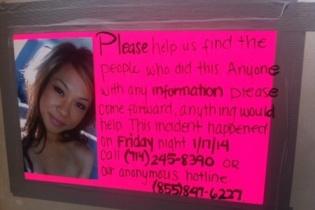 Please help us find the
people who did this. Anyone
with any information please
come forward, anything would
help. This incident happened
on Friday night 1/17/14
Call (714) 245-8390 OR
our anonymous hotline
(855) 847-6227